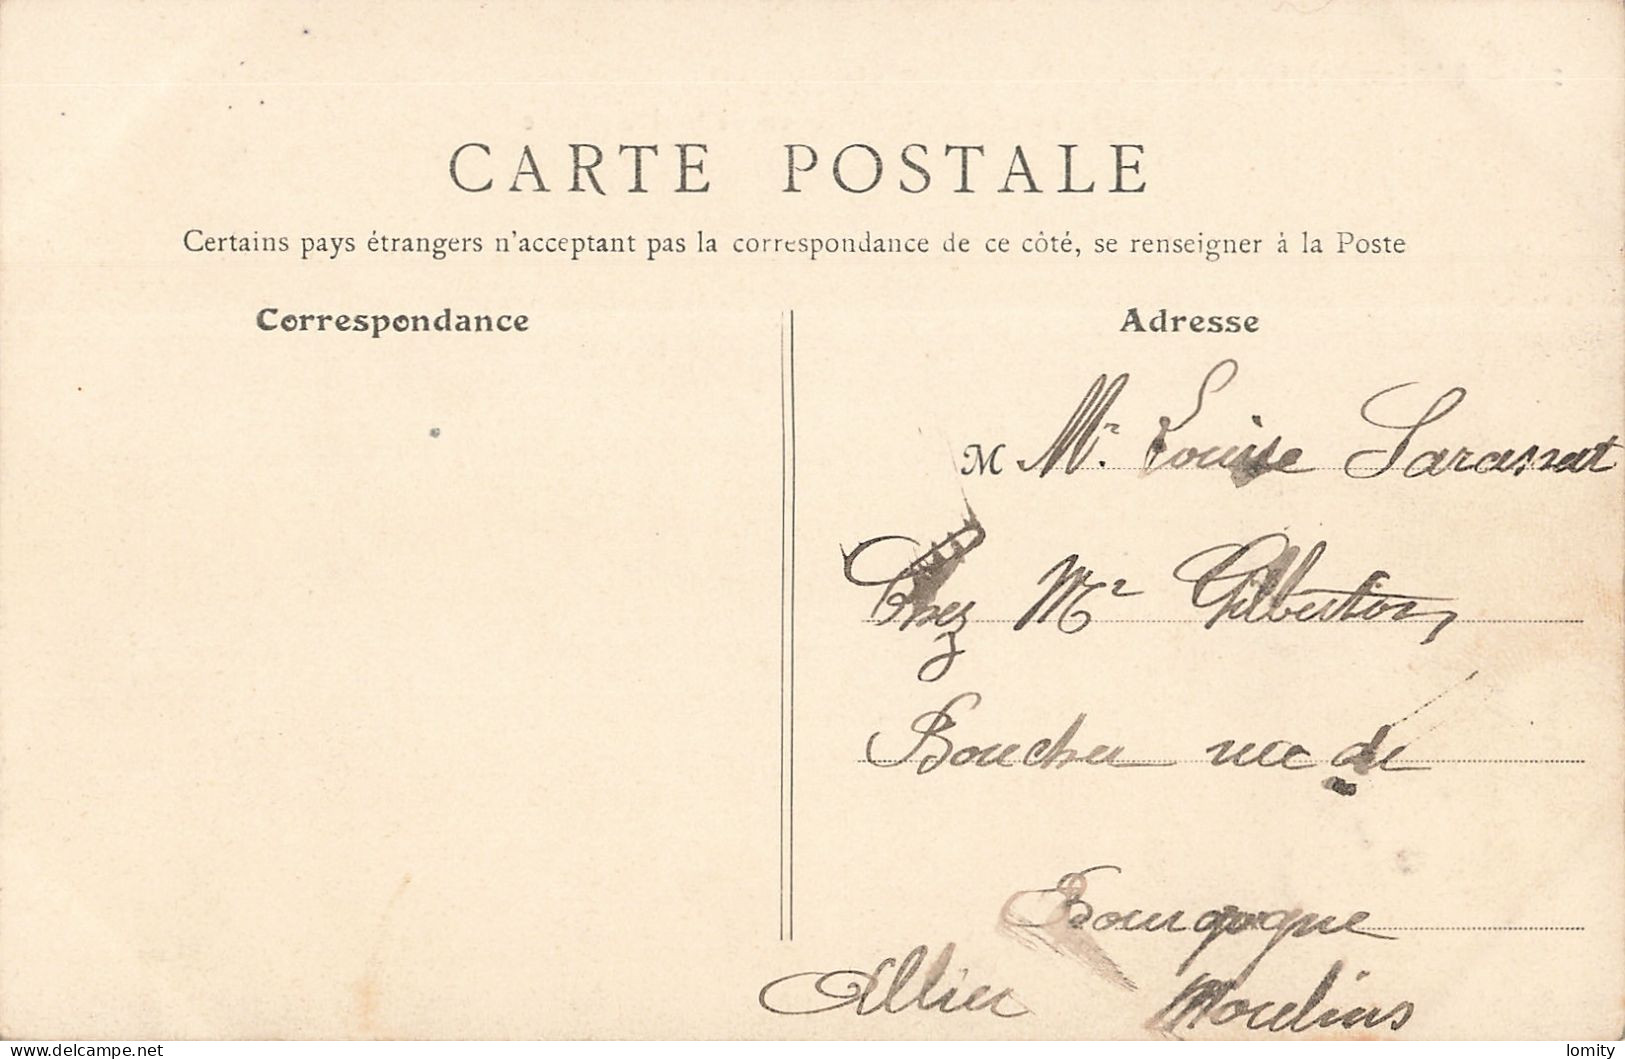 CARTE POSTALE
Certains pays étrangers n'acceptant pas la correspondance de ce côté, se renseigner à la Poste
Correspondance
Adresse
M Mr. Louise Sarassat
Chez Mr Gilberton
Boucher rue de
Bourgogne
Allier Moulins
delcampe.net
lomity